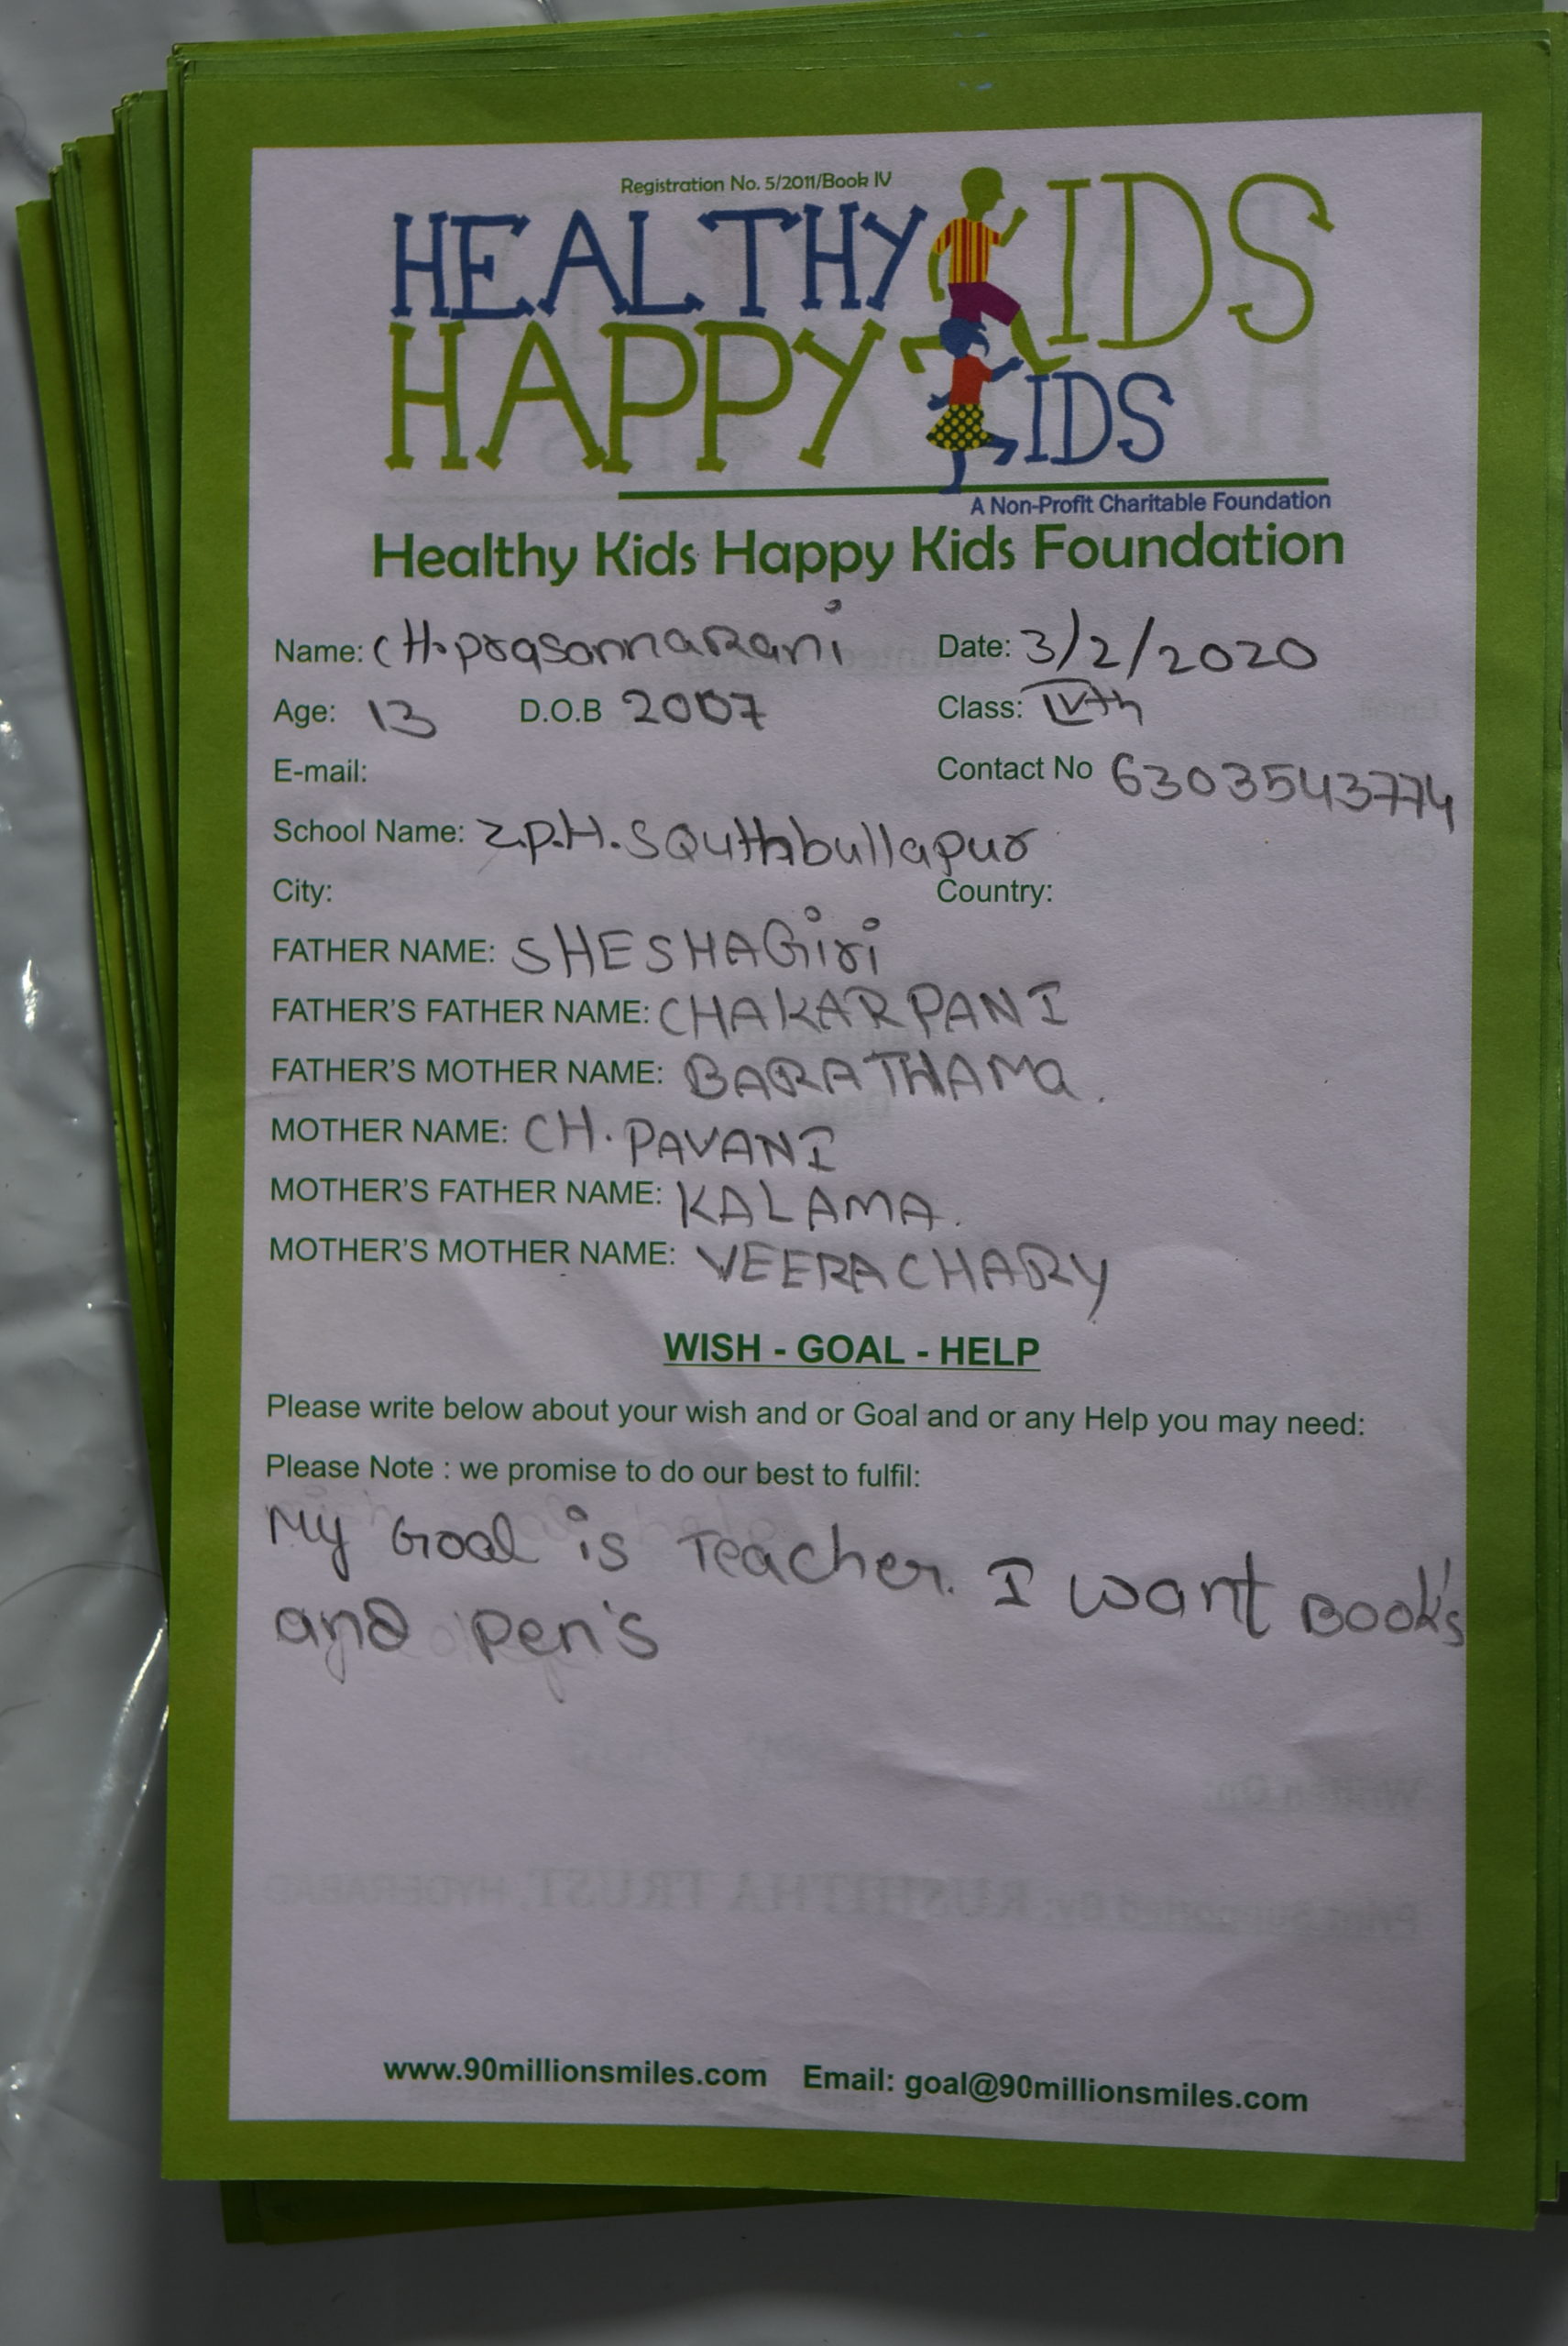 Registration No. 5/2011/Book IV
HEALTHY KIDS
HAPPY KIDS
A Non-Profit Charitable Foundation
Healthy Kids Happy Kids Foundation
Name: CH.prasannaRani Date: 3/2/2020
Age: 13 D.O.B 2007 Class: IVth
E-mail: Contact No 6303543774
School Name: Z.P.H.SQuthbullapur
City: Country:
FATHER NAME: SHESHAGiri
FATHER'S FATHER NAME: CHAKARPANI
FATHER'S MOTHER NAME: BARATHAMa.
MOTHER NAME: CH. PAVANI
MOTHER'S FATHER NAME: KALAMA.
MOTHER'S MOTHER NAME: VEERACHARY
WISH - GOAL - HELP
Please write below about your wish and or Goal and or any Help you may need:
Please Note : we promise to do our best to fulfil:
My Goal is Teacher. I want Book's
and Pen's
Written On:
Print Supported By: RUSHITHA TRUST, HYDERABAD
www.90millionsmiles.com Email: goal@90millionsmiles.com